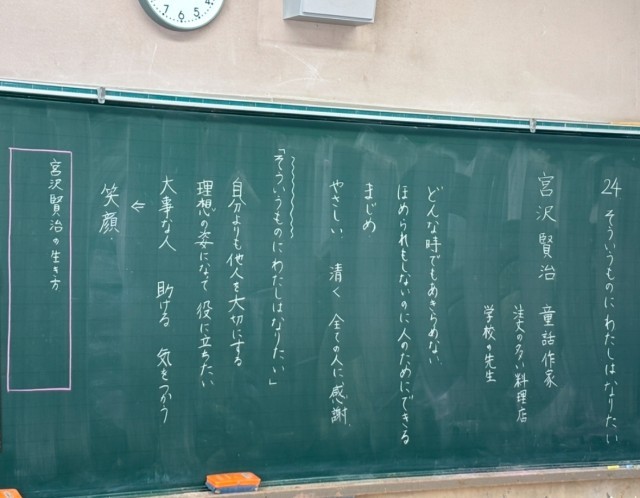 24 そういうものにわたしはなりたい
宮沢賢治 童話作家
注文の多い料理店
学校の先生
どんな時でもあきらめない
ほめられもしないのに人のためにできる
まじめ
やさしい 清く 全ての人に感謝
「そういうものにわたしはなりたい」
自分よりも他人を大切にする
理想の姿になって役に立ちたい
大事な人 助ける 気をつかう
←
笑顔
宮沢賢治の生き方
7 6 5